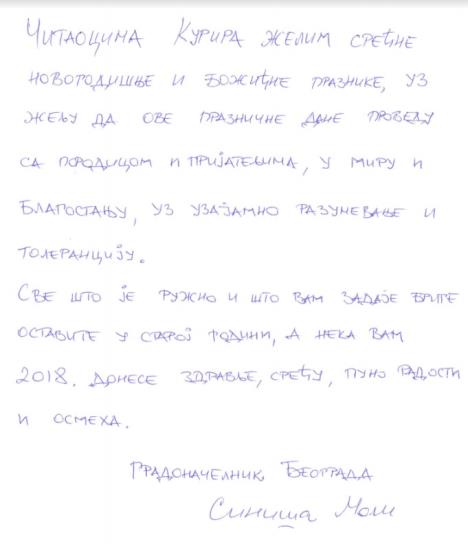 Читаоцима Курира желим срећне
новогодишње и божићне празнике, уз
жељу да ове празничне дане проведу
са породицом и пријатељима, у миру и
благостању, уз узајамно разумевање и
толеранцију.
Све што је ружно и што вам задаје бриге
оставите у старој години, а нека вам
2018. донесе здравље, срећу, пуно радости
и осмеха.
Градоначелник Београда
Синиша Мали